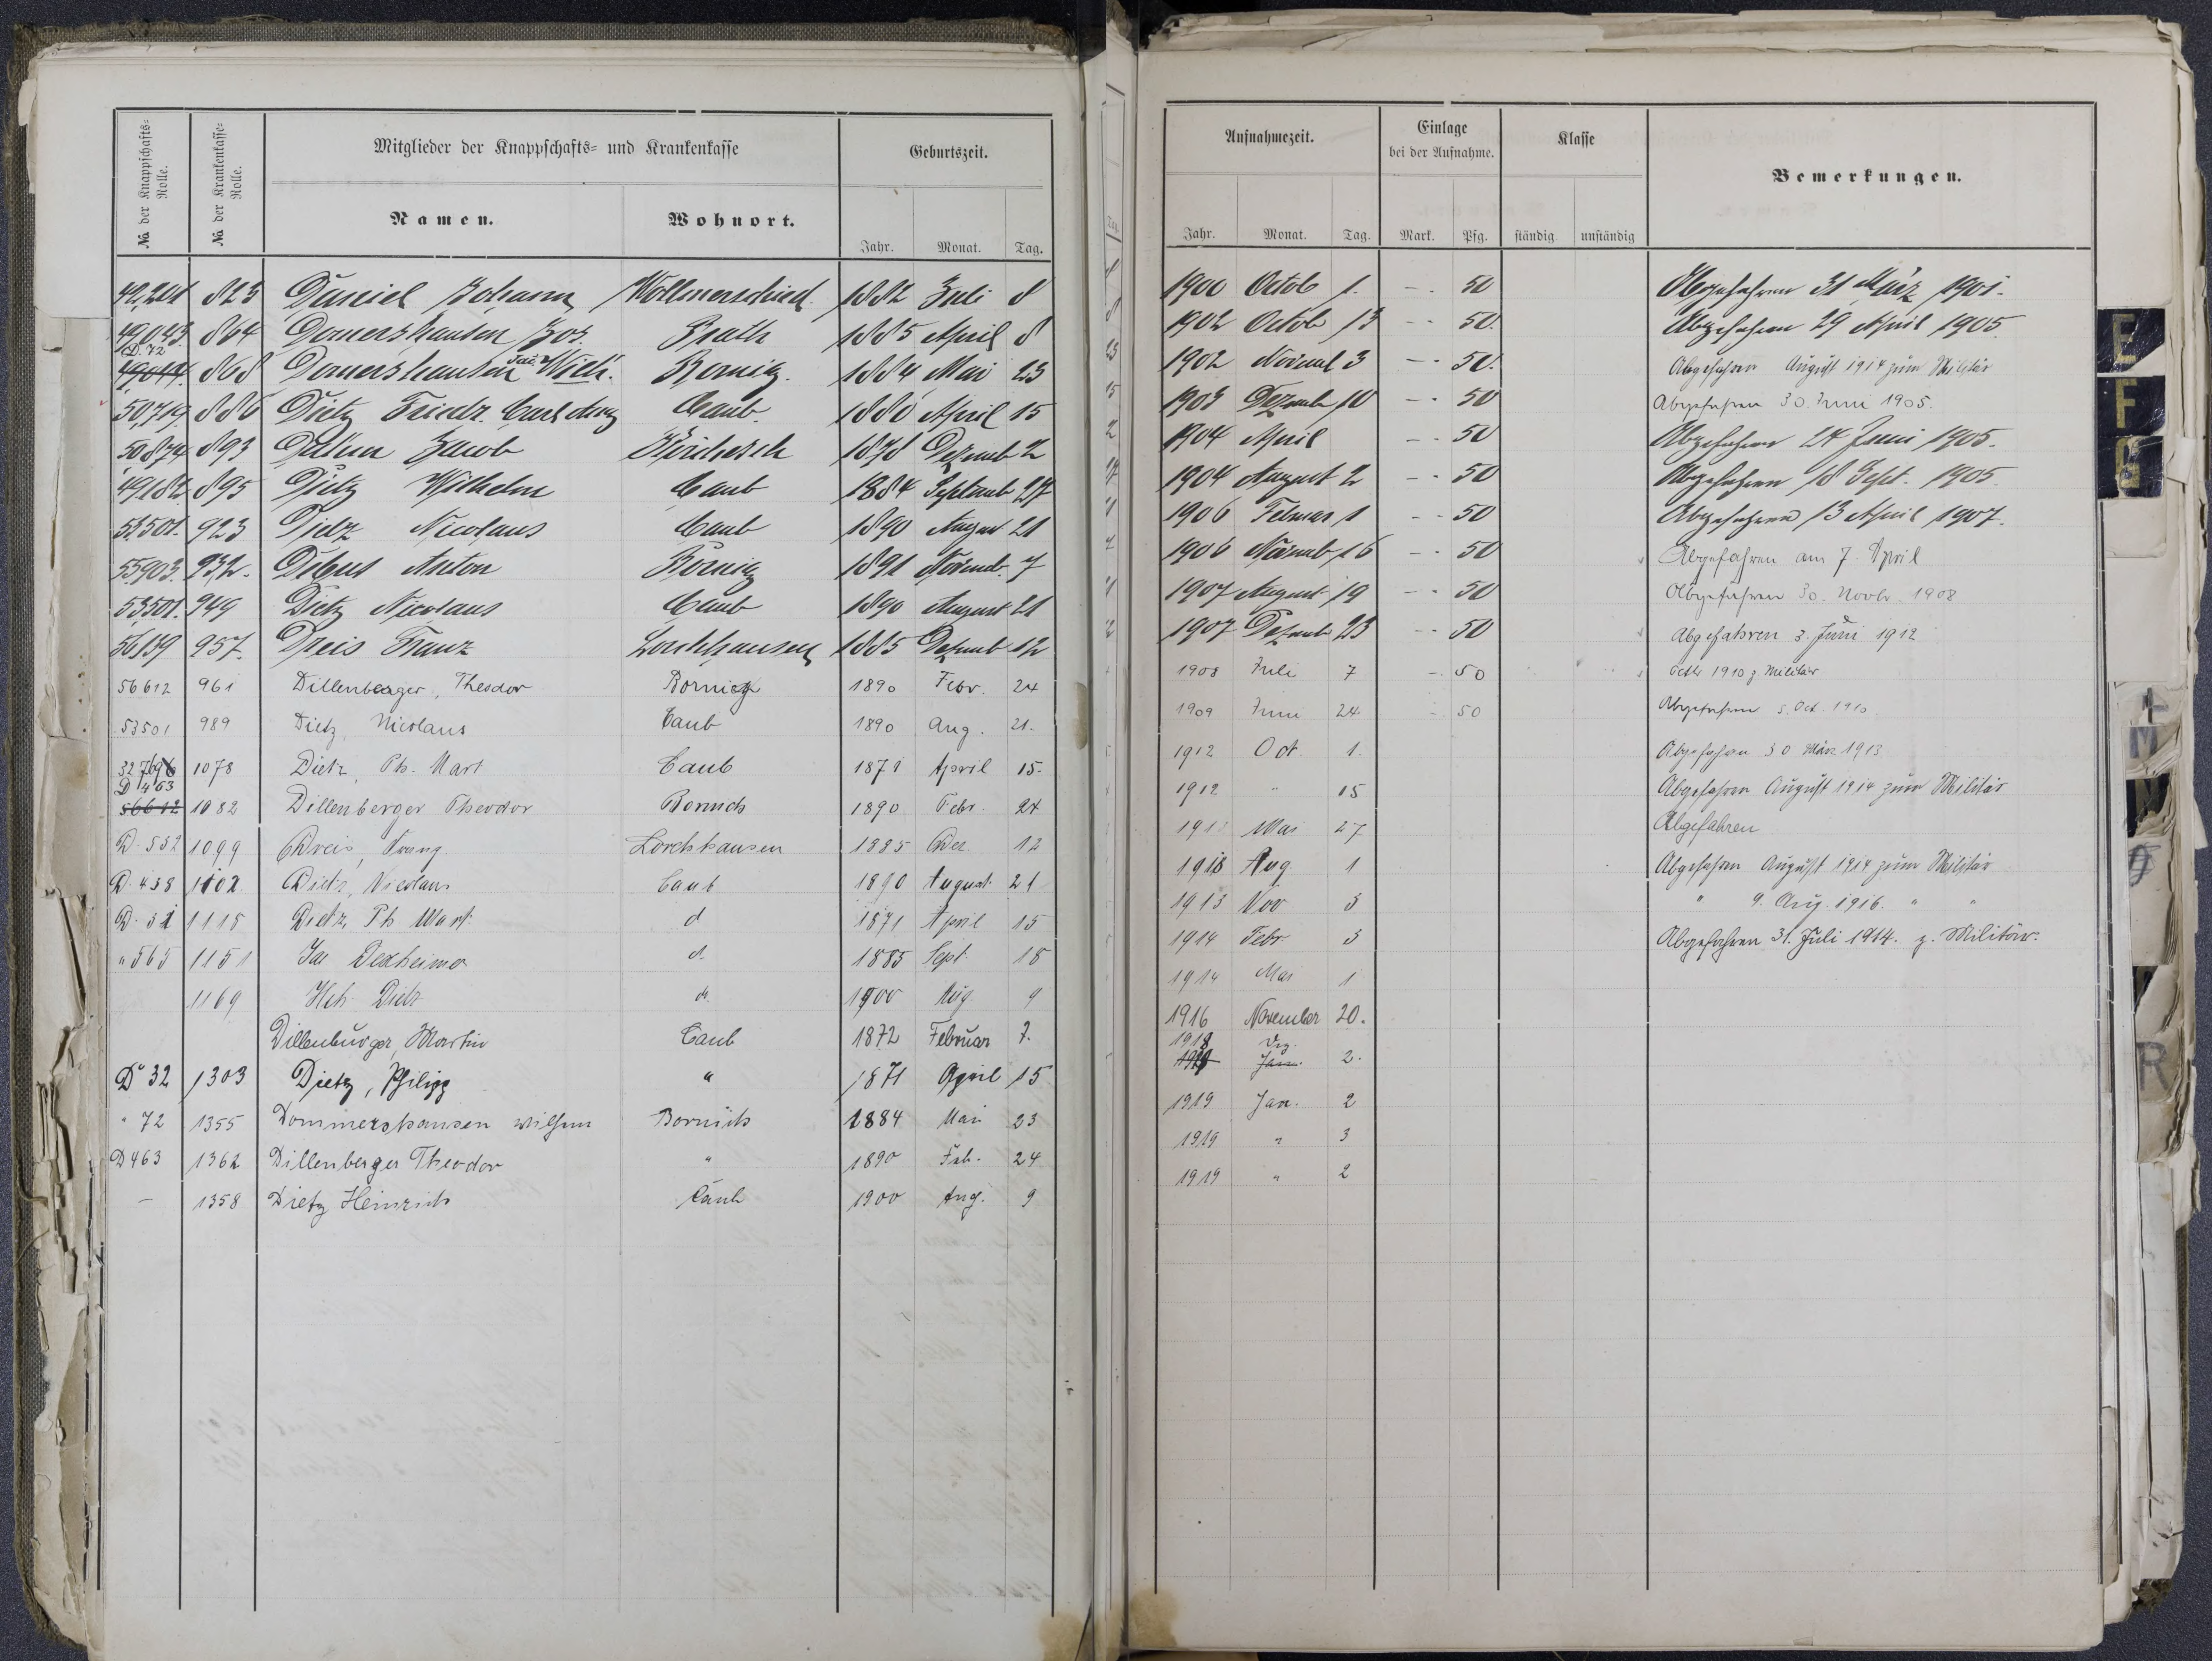 No. der Knappschafts-Rolle. No. der Krankenkasse-Rolle. Mitglieder der Knappschafts- und Krankenkasse Geburtszeit.
Namen. Wohnort. Jahr. Monat. Tag.
49,241 823 Daniel Johann Wollmerschied. 1882 Juli 8
49,043. 864 Domershausen Jos. 1885 April 8
D. 72
49019. 868 Domershausen Wilh. Bornig. 1884 Mai 23
50,719. 886 Dietz Friedr. Carl Caub. 1880 April 15
50874 893 Jacob 1878 Dezemb 2
49,182. 895 Dietz Wilhelm Caub 1884 Septemb 27
53501. 923 Dietz Nicolaus Caub 1890 August 21
55,903. 932. Debus Anton Bornig 1891 Novemb. 7
53,501. 949 Dietz Nicolaus Caub 1890 August 21
56139 957. Dreis Franz Lorchhausen 1885 Dezemb 12
56612 961 Dillenberger, Theodor Bornich 1890 Febr. 24
53501 989 Dietz, Nicolaus Caub 1890 Aug. 21.
32769 1078 Dietz, Ph. Mart Caub 1871 April 15.
D 463
56612 1082 Dillenberger Theodor Bornich 1890 Febr 24
D. 532 1099 Dreis, Franz Lorchhausen 1885 Dez. 12
D. 438 1102 Dietz, Nicolaus Caub 1890 August 21
D. 32 1115 Dietz, Ph. Mart. d 1871 April 15
" 565 1151 Jac Dexheimer d. 1885 Sept. 18
1169 Hch. Dietz d. 1900 Aug 9
Dillenburger, Martin Caub 1872 Februar 7.
D 32 1303 Dietz, Philipp " 1871 April 15
" 72 1355 Dommershausen Wilhelm Bornich 1884 Mai 23
D 463 1362 Dillenberger Theodor " 1890 Feb. 24
– 1358 Dietz Heinrich Caub 1900 Aug. 9
Aufnahmezeit. Einlage bei der Aufnahme. Klasse Bemerkungen.
Jahr. Monat. Tag. Mark. Pfg. ständig unständig
1900 Octob 1. – 50 Abgefahren 31 März 1901.
1902 Octob 13 – 50. Abgefahren 29 April 1905.
1902 Novemb 3 – 50. Abgefahren August 1914 zum Militär
1903 Dezemb 10 – 50 Abgefahren 30. Juni 1905.
1904 April – 50 Abgefahren 24 Juni 1905.
1904 August 2 – 50 Abgefahren 18 Sept. 1905
1906 Februar 1 – 50 Abgefahren 13 April 1907.
1906 Novemb 16 – 50 Abgefahren am 7. April
1907 August 19 – 50 Abgefahren 30. Novbr. 1908
1907 Dezemb 23 – 50 Abgefahren 3. Juni 1912
1908 Juli 7 – 50 Octbr 1910 z. Militär
1909 Juni 24 – 50 Abgefahren 5. Oct. 1910.
1912 Oct. 1. Abgefahren 30 März 1913
1912 " 15 Abgefahren August 1914 zum Militär
1913 Mai 27 Abgefahren
1913 Aug 1 Abgefahren August 1914 zum Militär
1913 Nov 3 " 9. Aug. 1916. " "
1914 Febr 3 Abgefahren 31. Juli 1914. z. Militär.
1914 Mai 1
1916 November 20.
1918 Dez.
1919 Jan. 2.
1919 Jan. 2
1919 " 3
1919 " 2
E
F
G
M
N
R